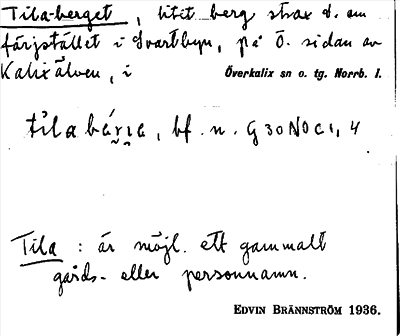 Tila-berget, litet berg strax S. om
färjstället i Svartbyn, på Ö. sidan av
Kalixälven, i Överkalix sn o. tg. Norrb. l.
bf. n. G 30 N0 C 1, 4
Tila : är möjl. ett gammalt
gårds- eller personnamn.
EDVIN BRÄNNSTRÖM 1936.